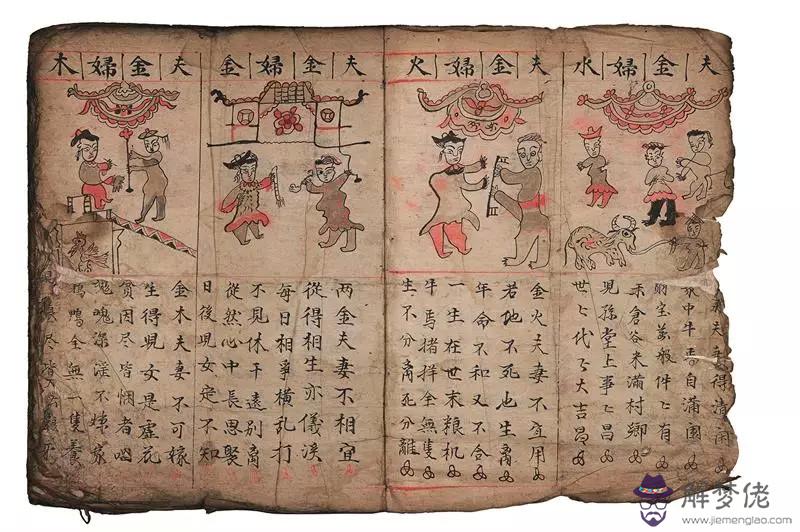 夫金婦水
夫妻得清
家中牛馬自滿圈
財宝萬般件々有
禾倉谷米滿村鄉
児孫堂上事々昌
世々代々大吉昌
夫金婦火
金火夫妻不宜用
若也不死也生离
年命不和又不合
一生在世末粮机
牛馬猪羊全無隻
生不分离死分離
夫金婦金
两金夫妻不相宜
從得相生亦儀溪
每日相爭橫乱打
不見休干遠別离
從然心中長思娶
日後児女定不知
夫金婦木
金木夫妻不可嫁
生得児女是虛花
貧因尽皆悃者凶
魂魄不嫌家
鴨全無一隻養
尽
解梦佬
www.jiemenglao.com